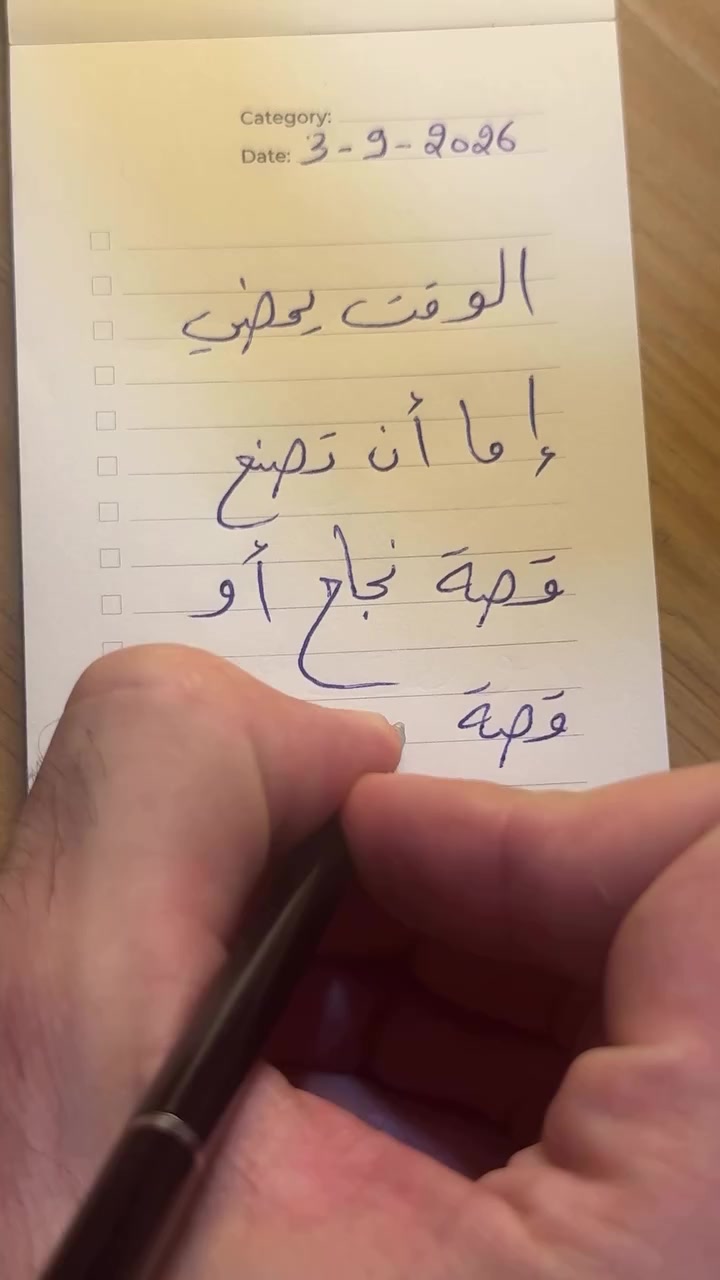 Category:
Date: 3-9-2026
الوقت يمضي
إما أن تصنع
قصة نجاح أو
قصة